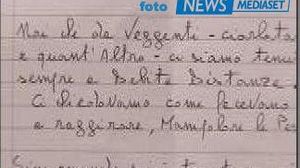 foto NEWS MEDIASET
Noi che da Veggenti - ciarlata
e quant'Altro - ci siamo tenu
sempre a Debita Distanza.
Ci chiedevamo come facevano
a raggirare, Manipolare le Pe